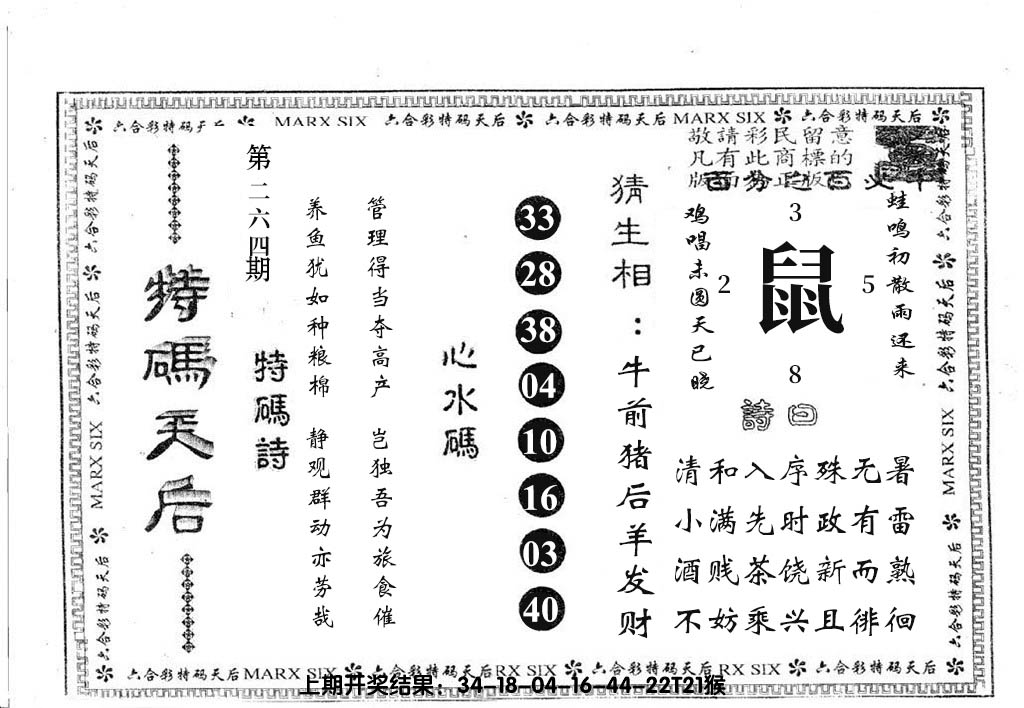 六合彩特码天后 MARX SIX 六合彩特码天后 六合彩特码天后 MARX SIX 六合彩特码天后
特碼天后
第二六四期
特碼詩
养鱼犹如种粮棉 静观群动亦劳哉
管理得当夺高产 岂独吾为旅食催
心水碼
33
28
38
04
10
16
03
40
猜生相：牛前猪后羊发财
敬請彩民留意
凡有此商標的
鸡唱未圆天已晓
蛙鸣初散雨还来
3
2
鼠
5
8
詩曰
清和入序殊无暑
小满先时政有雷
酒贱茶饶新而熟
不妨乘兴且徘徊
六合彩特码天后 MARX SIX 六合彩特码天后
六合彩特码天后 MARX SIX 六合彩特码天后
六合彩特码天后 MARX SIX 六合彩特码天后 RX SIX 六合彩特码天后 RX SIX 六合彩特码天后
上期开奖结果：34-18-04-16-44-22T21猴